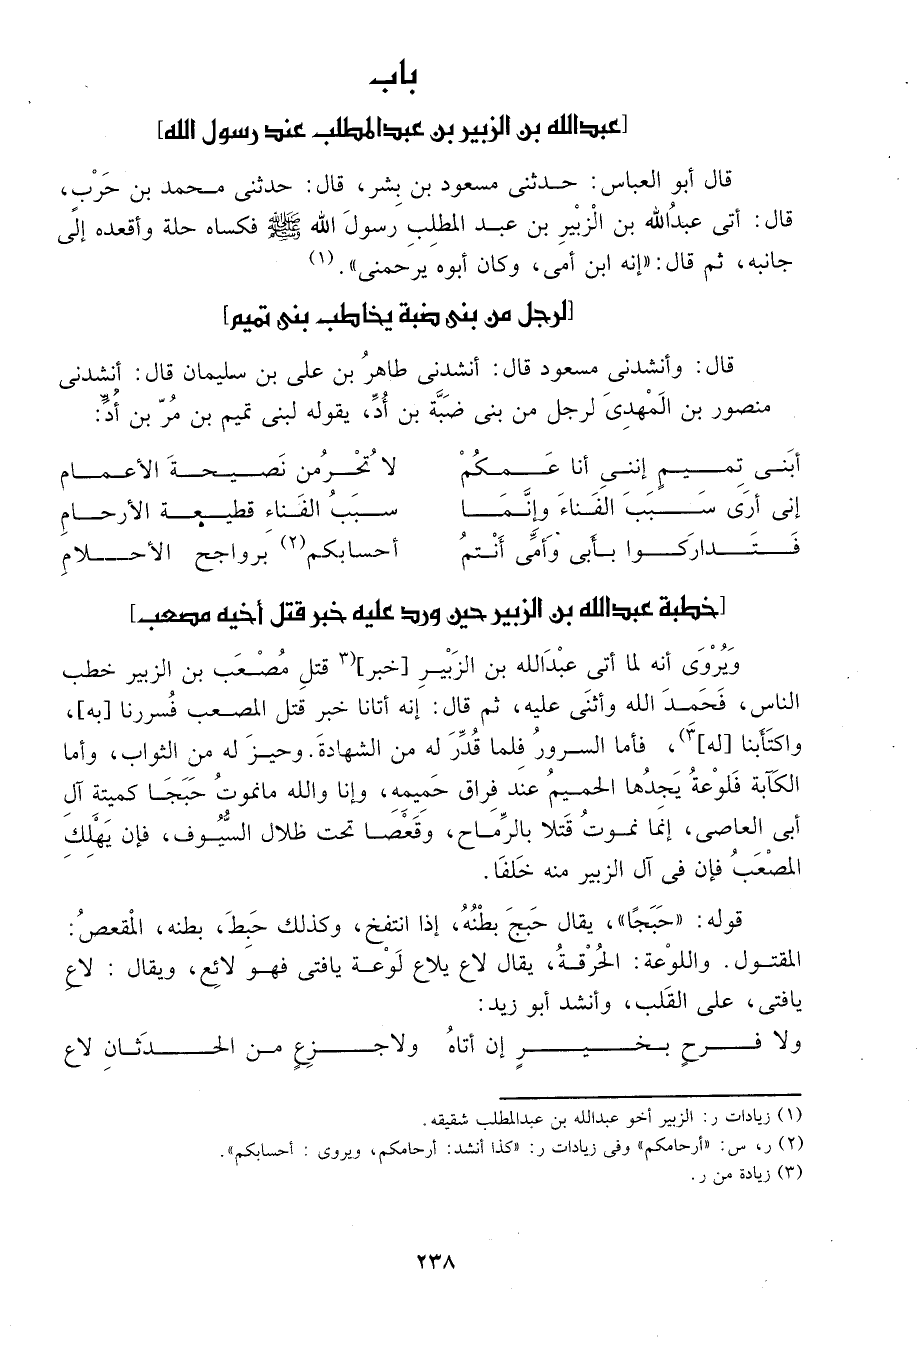 باب
[عبدالله بن الزبير بن عبدالمطلب عند رسول الله]
قال أبو العباس: حدثنى مسعود بن بشر، قال: حدثنى محمد بن حَرْبٍ،
قال: أتى عبدُالله بن الْزبَيْرِ بن عبد المطلبِ رسولَ الله ﷺ فكساه حلة وأقعده إلى
جانبه، ثم قال:«إنه ابن أمى، وكان أبوه يرحمنى».(١)
[لرجل من بنى ضبة يخاطب بنى تميم]
قال: وأنشدنى مسعود قال: أنشدنى طاهرُ بن على بن سليمان قال: أنشدنى
منصور بن الَمهْدِىَ لرجل من بنى ضَبَّة بن أُدٍّ، يقوله لبنى تميم بن مُرّ بن أُدٍّ:
أَبَنى تَمِيمٍ إننى أنا عَمكُمْ لا تُحْرمُن نَصيحةَ الأعمامِ
إنى أرَى سَبَبَ الفَناءَ وإنَّمَا سببُ الفَناء قطيعة الأرحامِ
فَتَداركوا بأبى وَأمِّى أنْتمُ أحسابكم(٢) برواجح الأحلامِ
[خطبة عبدالله بن الزبير حين ورد عليه خبر قتل أخيه مصعب]
وَيُرْوَى أنه لما أتى عبْدَالله بن الزبَيْرِ [خبر](٣ قتلِ مُصْعَب بن الزبير خطب
الناس، فَحَمدَ الله وأثنَى عليه، ثم قال: إنه أتانا خبر قتل المصعب فُسررنا [به]،
واكتَأبنا [له]٣)، فأما السرورُ فلما قُدِّرَ له من الشهادةَ.وحيزَ له من الثواب، وأما
الكآبة فَلوْعةُ يَجدُها الحَميمُ عند فراق حَميمه، وإنا والله مانموتُ حَبَجَا كميتة آل
أبى العاصى، إنما نموتُ قتلا بالرِّماح، وقَعْصَا تحت ظلال السيُّوف، فإن يَهْلك
المصْعَبُ فإن فى آل الزبير منه خَلَفَا.
قوله: «حَبَجًا»، يقال حَبِجَ بطْنُهُ، إذا انتفخ، وكذلك حَبِطَ، بطنه، المْقعصُ:
المقتول. واللوعة: الحُرْقةُ، يقال لاع يلاع لَوْعة يافتى فهو لائع، ويقال : لاع
يافتى، على القَلب، وأنشد أبو زيد:
ولا فَرِحٍ بخَيرٍ إن أتاهُ ولاجَزِعٍ من الحدثَانِ لاع
(١) زيادات ر: الزبير أخو عبدالله بن عبدالمطلب شقيقه.
(٢) ر، س: «أرحامكم» وفى زيادات ر: «كذا أنشد: أرحامكم، ويروى : أحسابكم».
(٣) زيادة من ر.
٢٣٨